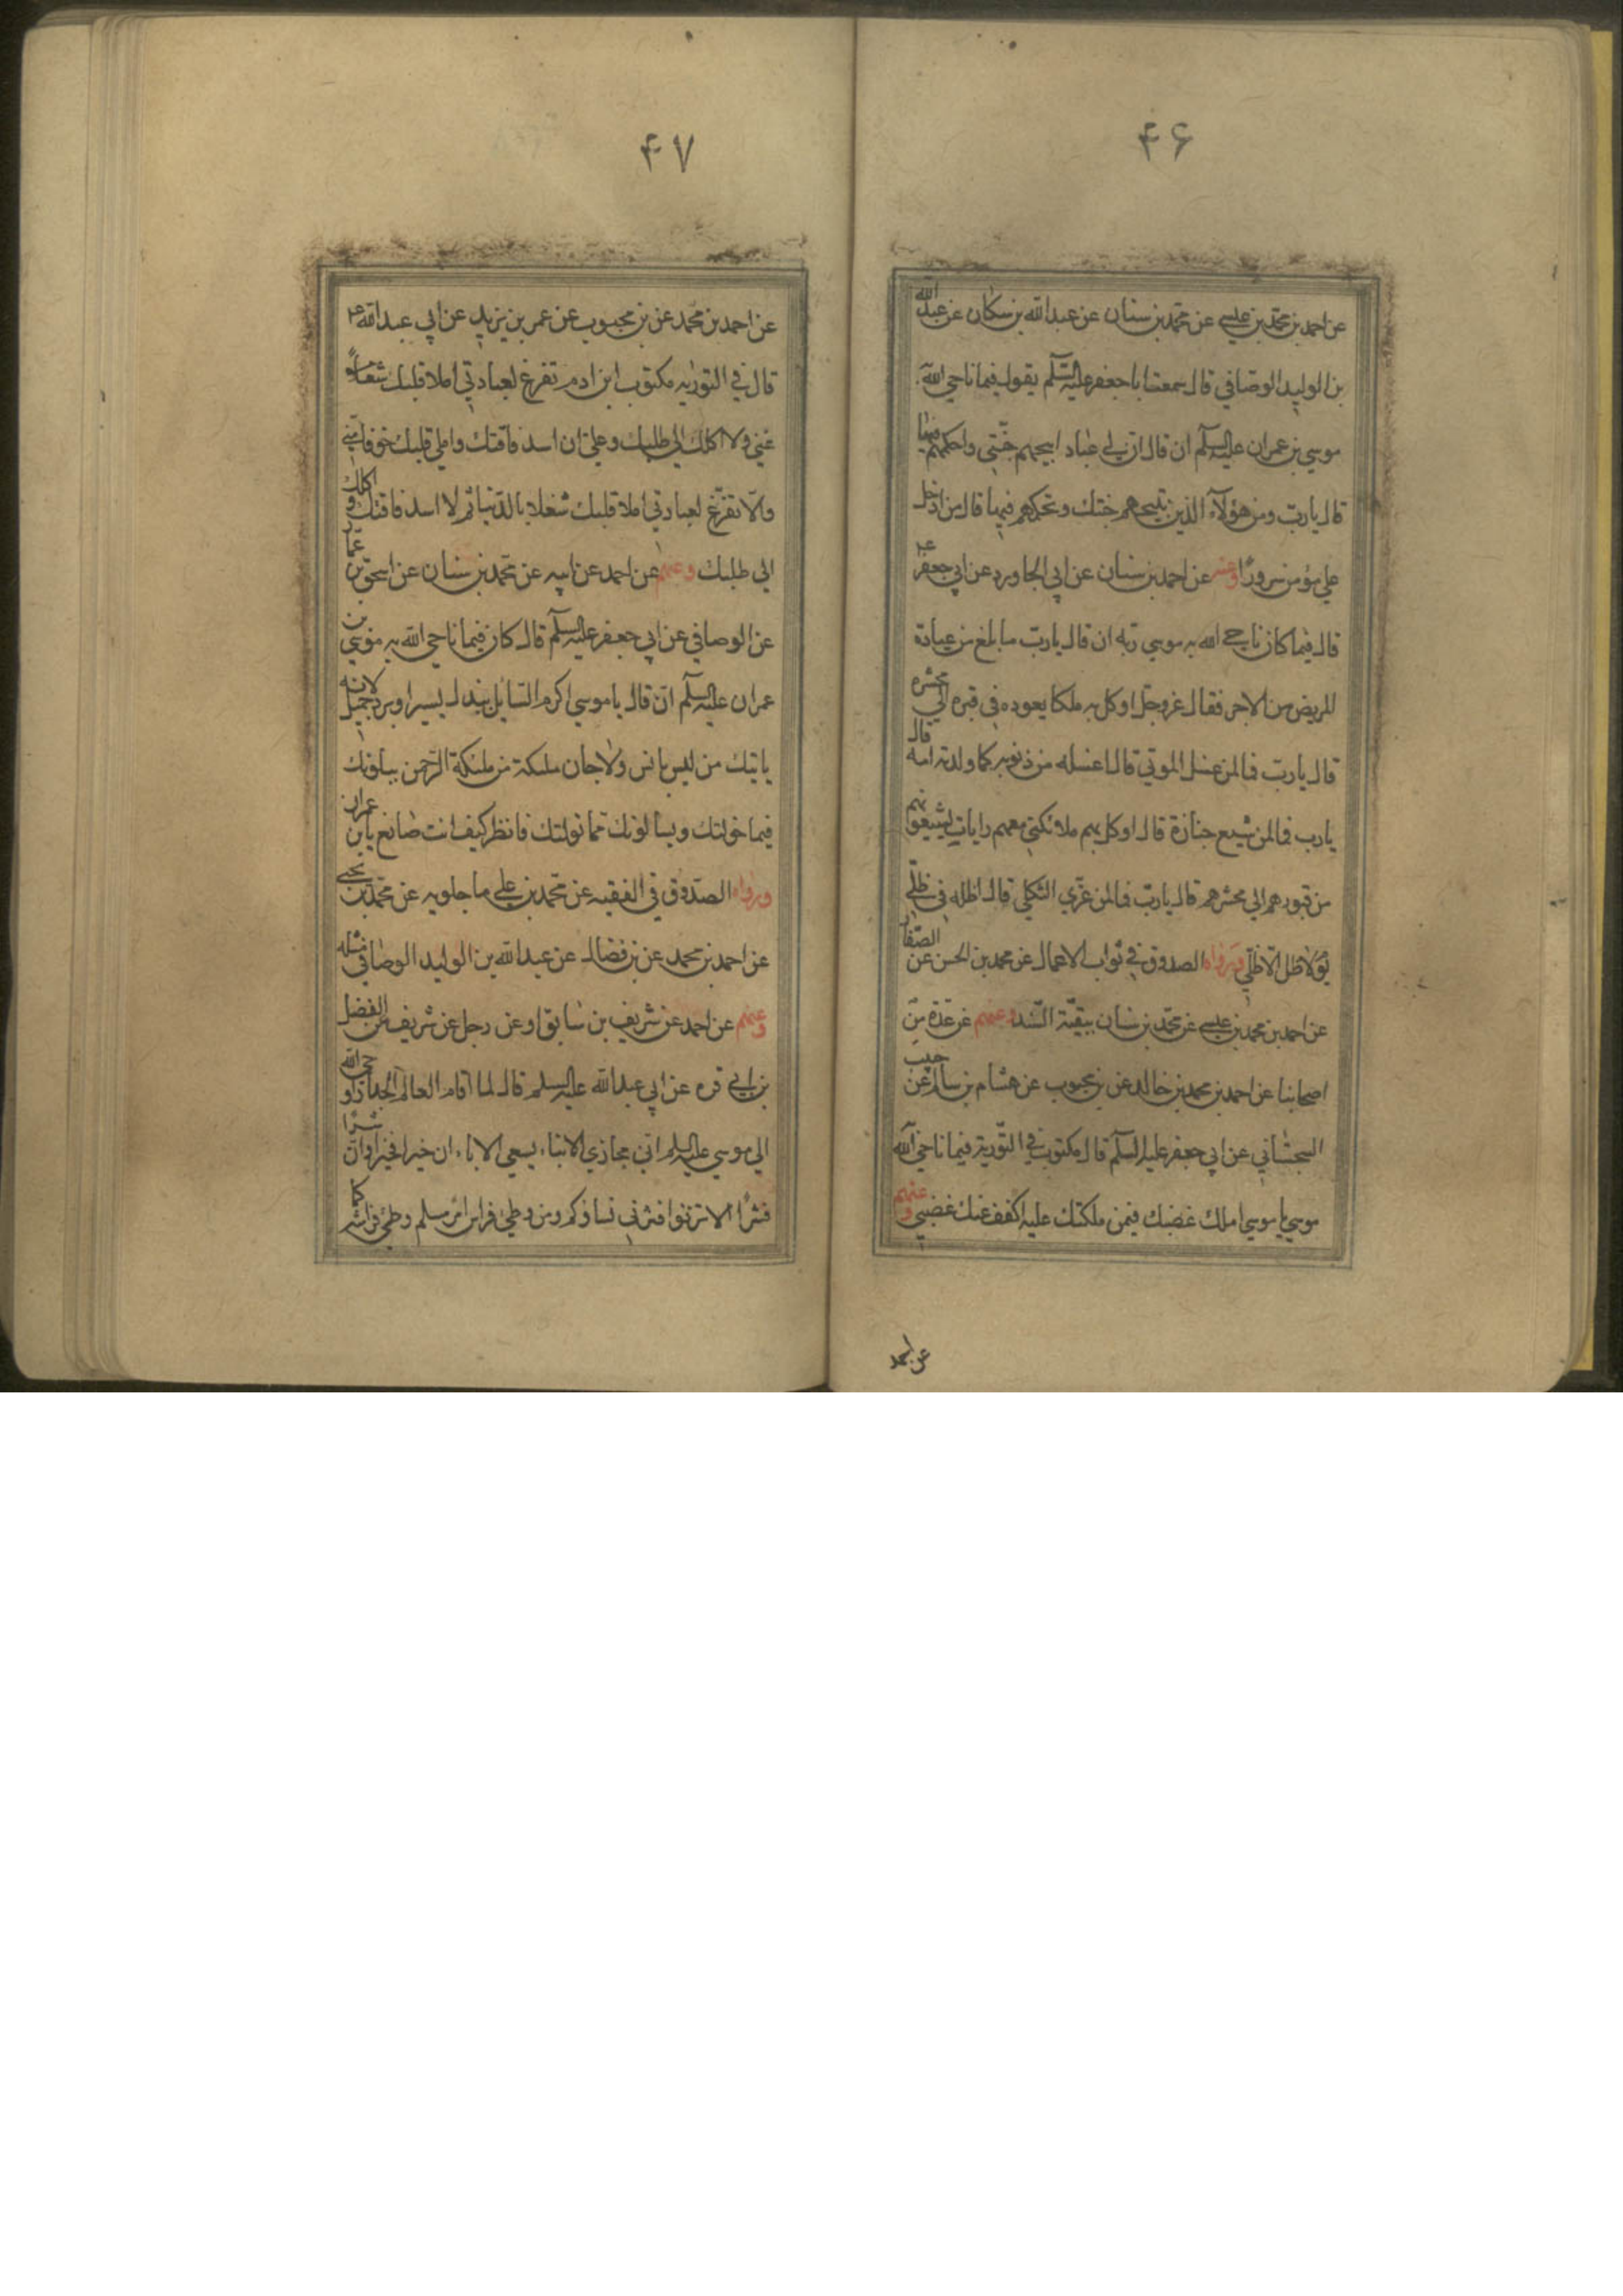 ۴۶
عن احمد بن محمد بن عيسى عن محمد بن سنان عن عبدالله بن سكان عن عبد الله
بن الوليد الوصافي قال سمعت ابا جعفر عليه السلم يقول فيما ناجى الله
موسى بن عمران عليه السلم ان قال ان لي عبادا ابيحهم جنتي واحكمهم فيها
قال يا رب ومن هؤلاء الذين تبيحهم جنتك وتحكمهم فيها قال من ادخل
على مؤمن سرورا وعنه عن احمد بن سنان عن ابي الجاورد عن ابي جعفر ع
قال فيما كان ناجى الله به موسى ربه ان قال يا رب ما بلغ من عيادة
المريض من الاجر فقال عز وجل اوكل به ملكا يعوده في قبره الى محشره
قال يا رب فما لمن غسل الموتى قال اغسله من ذنوبه كما ولدته امه قال
يا رب فما لمن شيع جنازة قال اوكل بهم ملائكتي معهم رايات يشيعونهم
من قبورهم الى محشرهم قال يا رب فما لمن عزى الثكلى قال اظله في ظلي
يوم لا ظل الا ظلي ورواه الصدوق في ثواب الاعمال عن محمد بن الحسن عن الصفار
عن احمد بن محمد بن عيسى عن محمد بن سنان ببقية السند وعنهم عن عدة من
اصحابنا عن احمد بن محمد بن خالد عن بن محبوب عن هشام بن سالم عن حبيب
السجستاني عن ابي جعفر عليه السلم قال مكتوب في التورية فيما ناجى الله
موسى يا موسى املك غضبك فيمن ملكتك عليه اكفف عنك غضبي وعنهم
عن احمد
۴۷
عن احمد بن محمد عن بن محبوب عن عمر بن يزيد عن ابي عبد الله ع
قال في التورية مكتوب ابن ادم تفرغ لعبادتي املا قلبك
عني ولا اكلك الى طلبك وعلى ان اسد فاقتك واملي قلبك خوفا مني
والا تفرغ لعبادتي املا قلبك شغلا بالدنيا ثم لا اسد فاقتك و اكلك
الى طلبك وعنهم عن احمد عن ابيه عن محمد بن سنان عن اسحق بن عمار
عن الوصافي عن ابي جعفر عليه السلم قال كان فيما ناجى الله به موسى بن
عمران عليه السلم ان قال يا موسى اكرم السائل ببذل يسير او برد جميل لانه
ياتيك من ليس بانس ولا جان ملئكة من ملئكة الرحمن يبلونك
فيما خولتك ويسالونك مما نولتك فانظر كيف انت صانع يا بن عمران
ورواه الصدوق في الفقيه عن محمد بن علي ماجلويه عن محمد بن يحيى
عن احمد بن محمد عن بن فضال عن عبد الله بن الوليد الوصافي مثله
وعنهم عن احمد عن شريف بن سابق او عن رجل عن شريف عن الفضل
بن ابي قره عن ابي عبد الله عليه السلم قال لما اقام العالم الجدار اوحى الله
الى موسى عليه السلم اني مجازي الابناء بسعي الاباء ان خيرا فخيرا وان شرا
فشرا لا تزنوا فتزني نساؤكم ومن وطئ فراش امرء مسلم وطئ فراشه كما